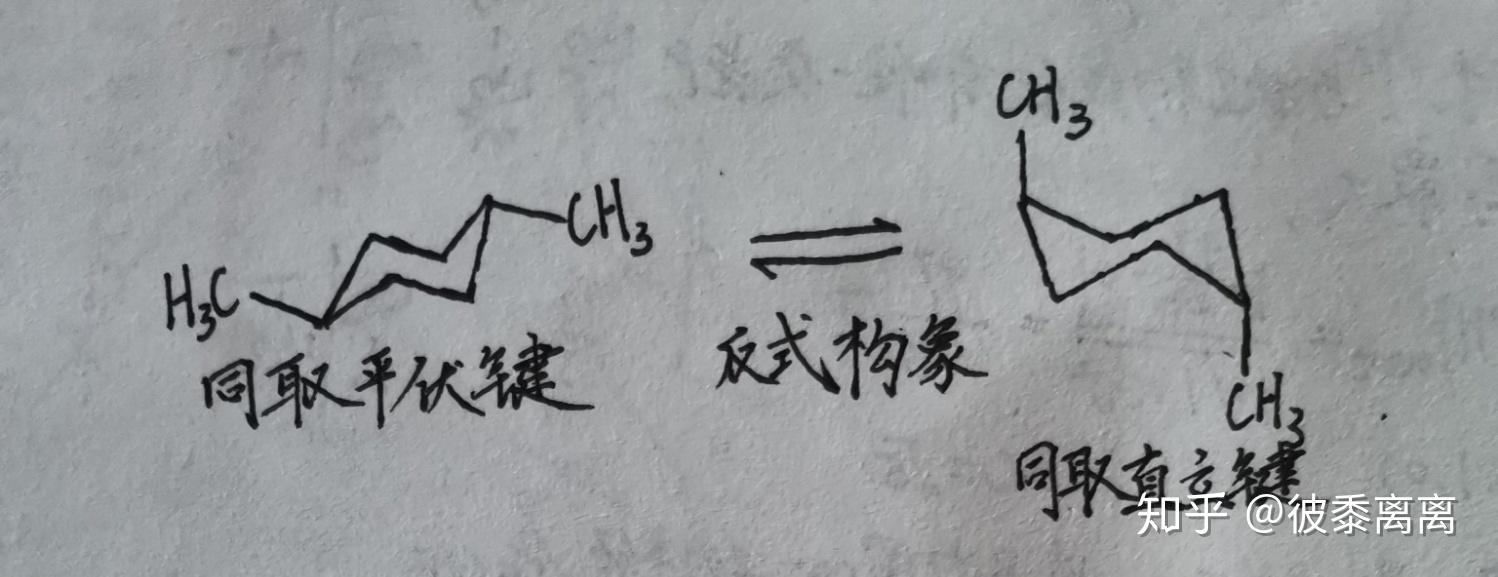 CH₃
CH₃
H₃C
同取平伏键
反式构象
CH₃
同取直立键
知乎 @彼黍离离